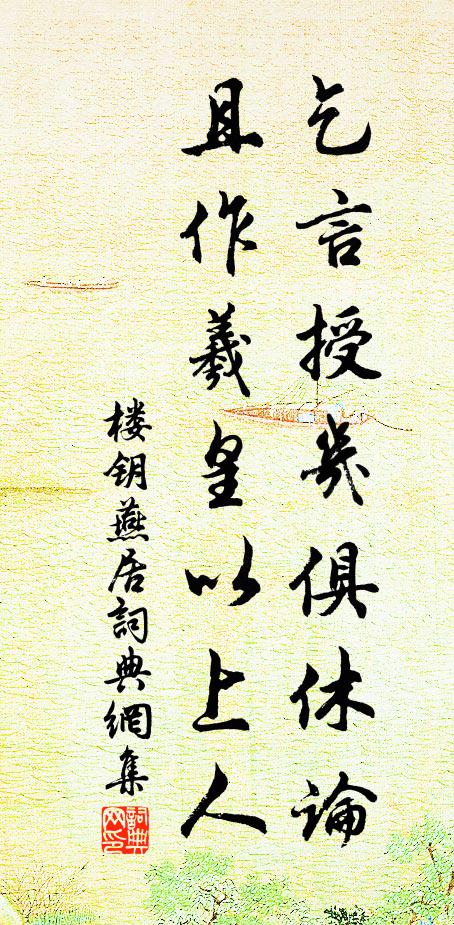 乞言授几俱休論
且作羲皇以上人
楼钥燕居詞典網集
詞典網印